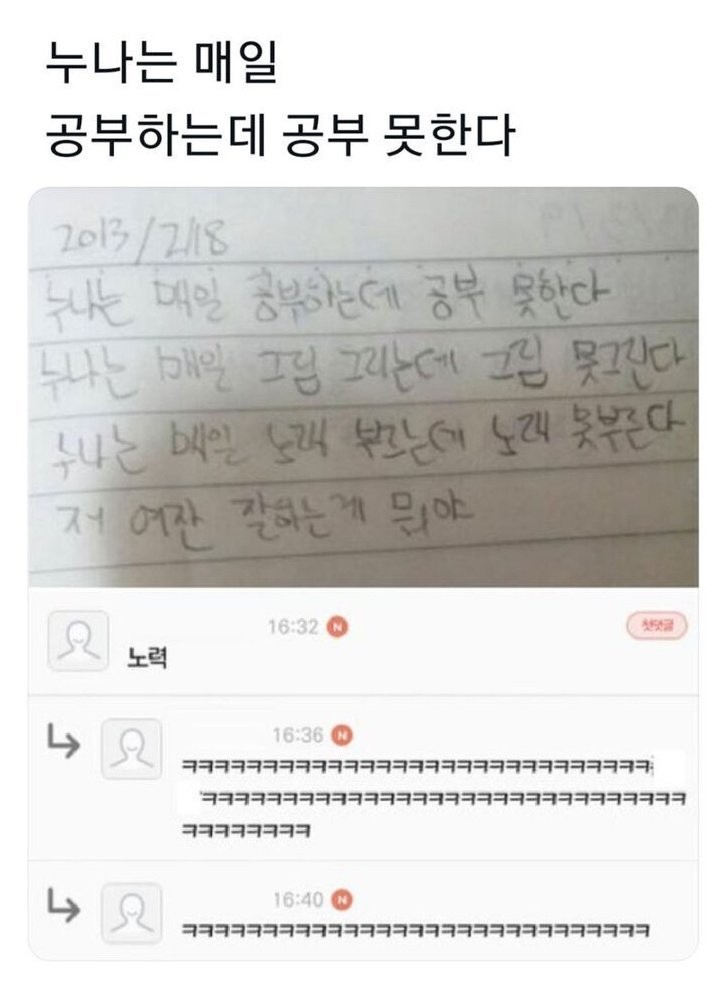 누나는 매일
공부하는데 공부 못한다
2013/2/18
누나는 매일 공부하는데 공부 못한다
누나는 매일 그림 그리는데 그림 못그린다
누나는 매일 노래 부르는데 노래 못부른다
저 여잔 잘하는게 뭐야
16:32 N
첫댓글
노력
16:36 N
ㅋㅋㅋㅋㅋㅋㅋㅋㅋㅋㅋㅋㅋㅋㅋㅋㅋㅋㅋㅋㅋㅋㅋㅋㅋㅋㅋㅋㅋ
ㅋㅋㅋㅋㅋㅋㅋㅋㅋㅋㅋㅋㅋㅋㅋㅋㅋㅋㅋㅋㅋㅋㅋㅋㅋㅋㅋㅋㅋㅋ
ㅋㅋㅋㅋㅋㅋㅋㅋ
16:40 N
ㅋㅋㅋㅋㅋㅋㅋㅋㅋㅋㅋㅋㅋㅋㅋㅋㅋㅋㅋㅋㅋㅋㅋㅋㅋㅋㅋㅋㅋ